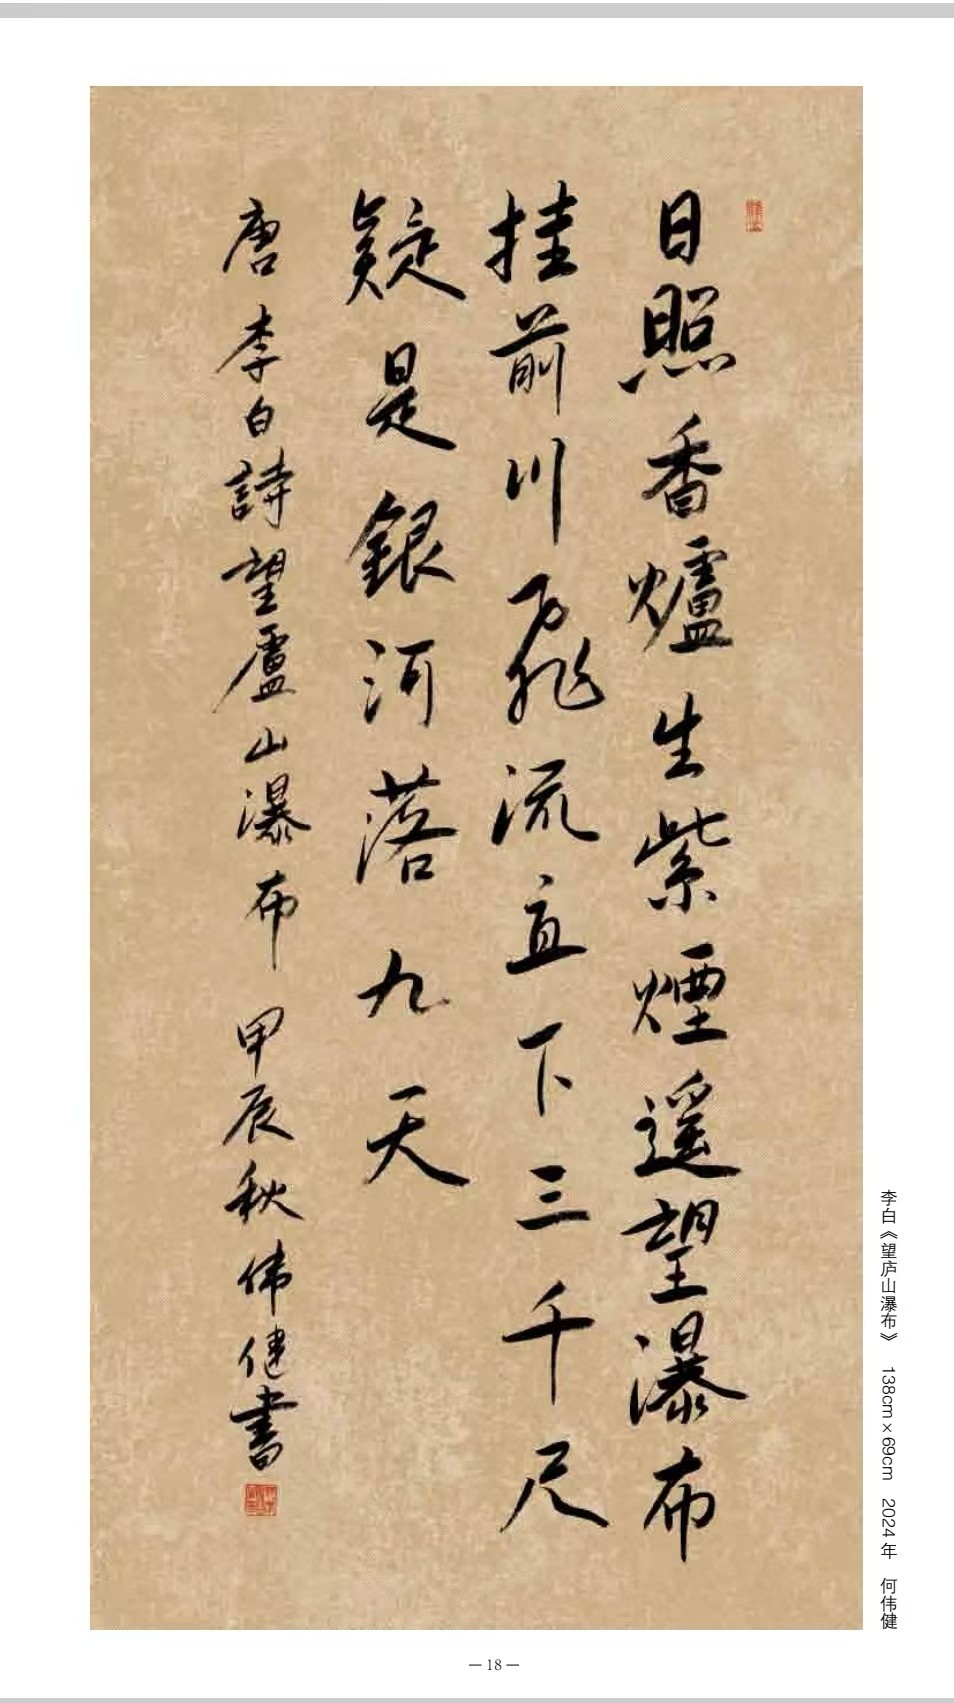 日照香爐生紫煙遥望瀑布
挂前川飛流直下三千尺
疑是銀河落九天
唐李白詩望廬山瀑布甲辰秋伟健書
李白《望庐山瀑布》 138cm×69cm 2024年 何伟健
— 18 —